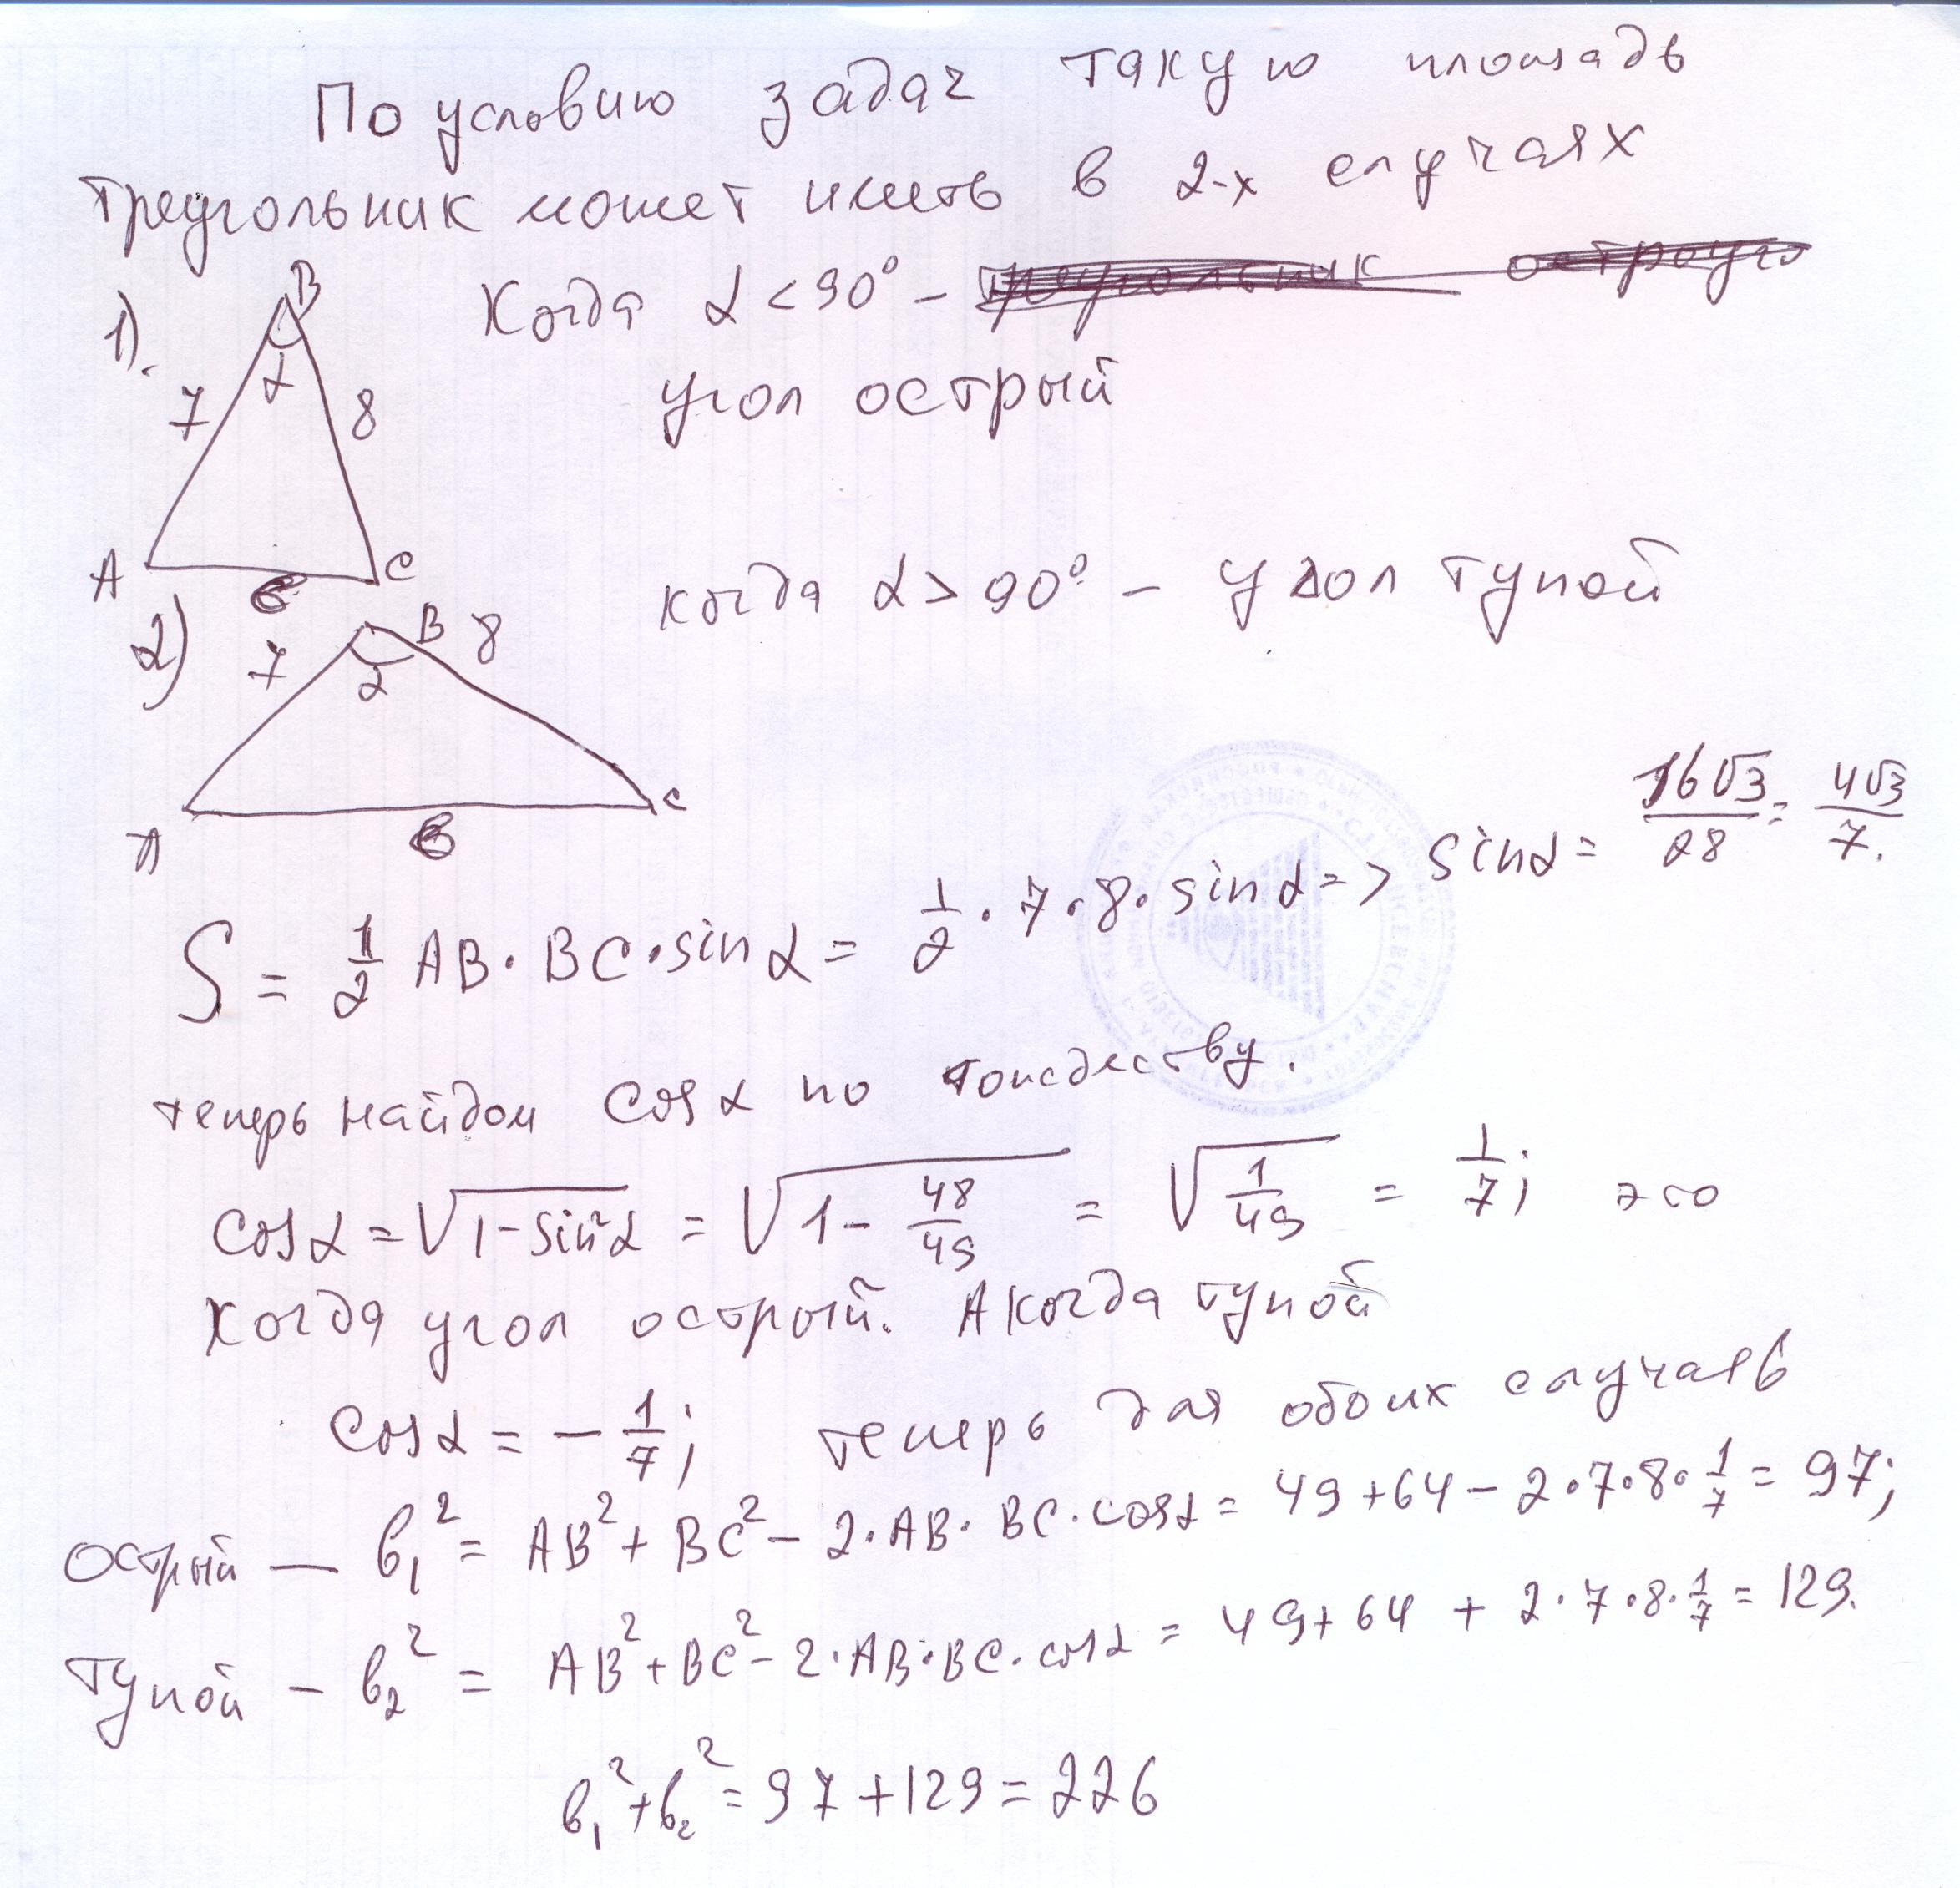 По условию задач такую площадь
треугольник может иметь в 2-х случаях
1). B Когда α < 90° –
α
7 8 угол острый
A C
в
когда α > 90° – угол тупой
2) 7 B 8
α
A в C
S = 1/2 AB · BC · sinα = 1/2 · 7 · 8 · sinα => sinα = 16√3/28 = 4√3/7.
теперь найдем cosα по тождеству.
cosα = √(1 - sin²α) = √(1 - 48/49) = √(1/49) = 1/7; это
когда угол острый. А когда тупой
cosα = - 1/7; теперь для обоих случаев
острый — в₁² = AB² + BC² - 2 · AB · BC · cosα = 49 + 64 - 2 · 7 · 8 · 1/7 = 97;
тупой – в₂² = AB² + BC² - 2 · AB · BC · cosα = 49 + 64 + 2 · 7 · 8 · 1/7 = 129.
в₁² + в₂² = 97 + 129 = 226